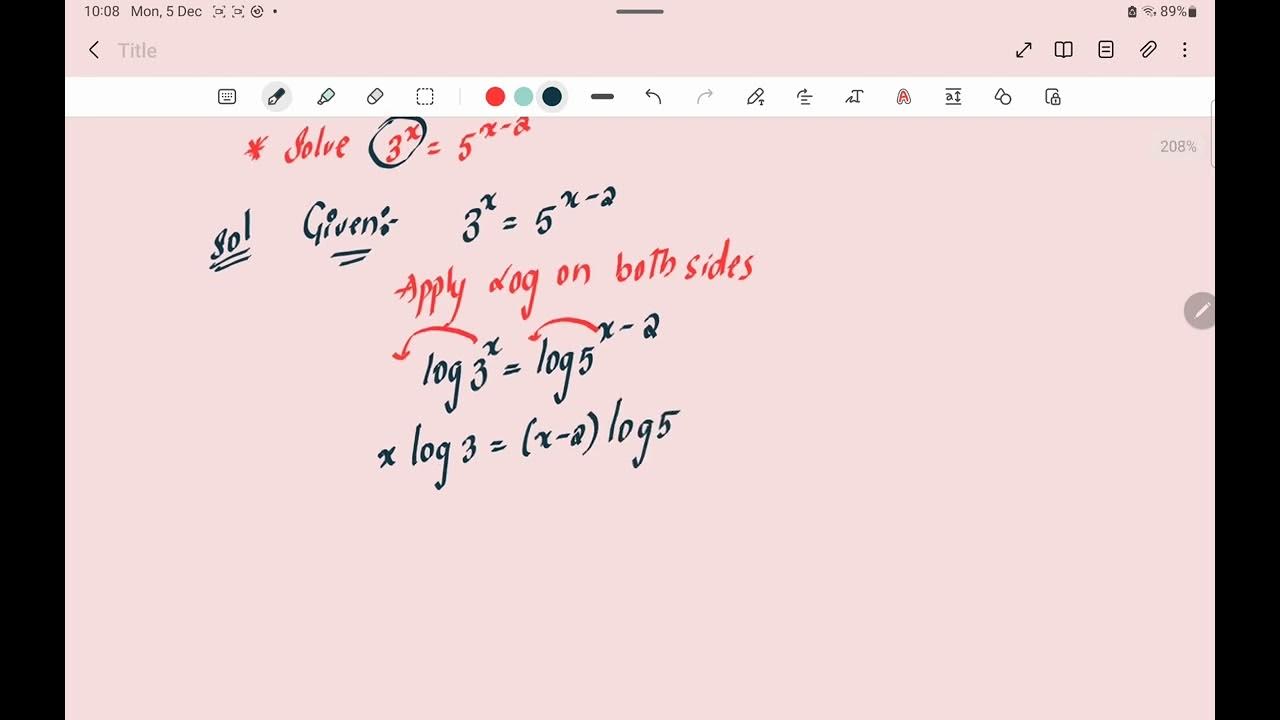 10:08 Mon, 5 Dec 89%
Title
208%
* Solve 3^x = 5^{x-2}
Sol Given:- 3^x = 5^{x-2}
Apply log on both sides
log 3^x = log 5^{x-2}
x log 3 = (x-2) log 5